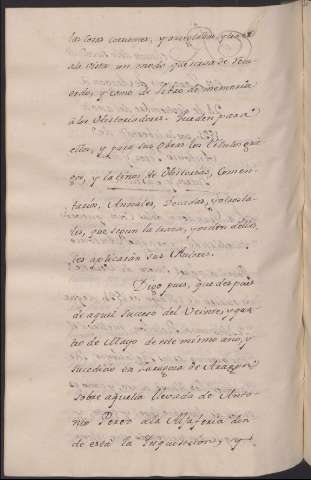 las cosas comunes, y
a la vista un modo que sirva de
erdo, y como de libro de memoria
a los Historiadores. Queden para
ellos, y para sus obras los titulos
gos, y latinos de Historias, Comen-
tarios, Annales, Decadas, y otros ta-
les, que segun la tarea, y orden de ellos,
les aplicarán sus Autores.
Digo pues, que despues
de aquel suceso del Veinte, y qua-
tro de Mayo de este mismo año, y
sucedido en Zaragoza de Aragon
sobre aquella llevada de Anto-
nio Perez a la Aljaferia don-
de está la Inquisicion, y